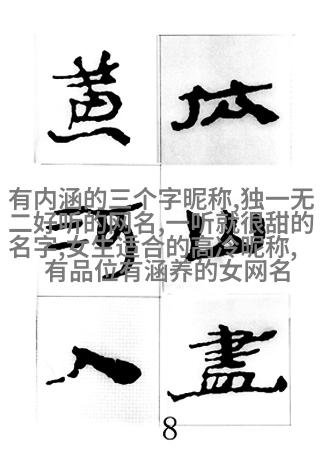 依山盡
黄河入
有内涵的三个字昵称,独一无
二好听的网名,一听就很甜的
名字,女生适合的高冷昵称,
有品位有涵养的女网名
8